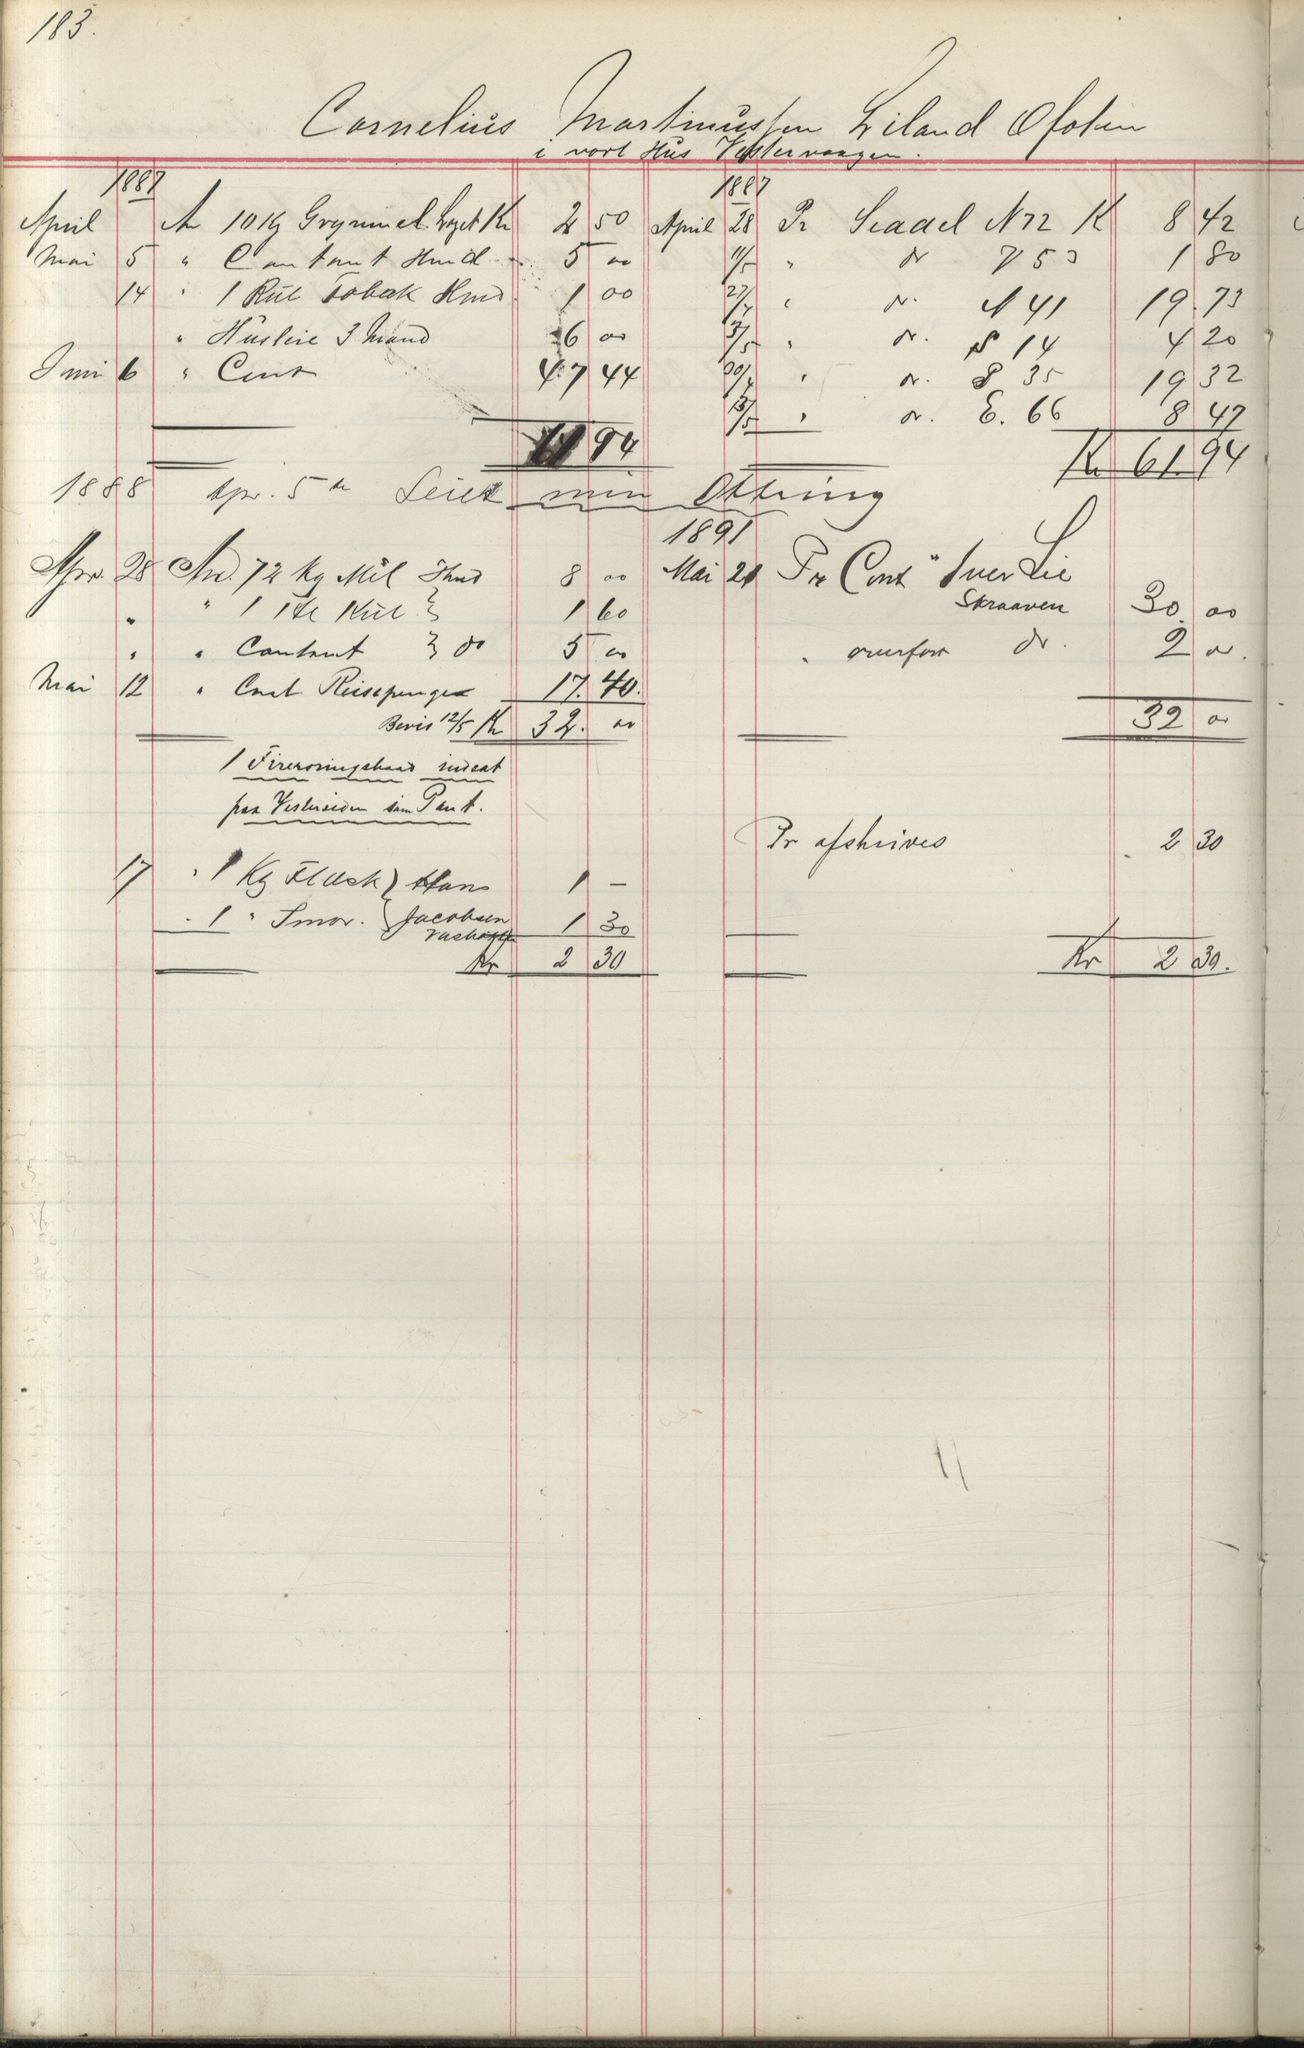 183.
Cornelius Martinussen Liland Ofoten
i vort Hus Vestervaagen.
1887
April An 10 Kg Grynmel Kr 2 50
Mai 5 " Contant Hmd 5 00
14 " 1 Rul Tobak Hmd 1 00
" Husleie 3 Mand 6 00
Juni 6 " Cont 47 44
61 94
1887
April 28 Pr Seddel N 72 K 8 42
11/5 " do V 53 1 80
27/4 " do. N 41 19.73
3/5 " do. S 14 4 20
30/4 " do. S 35 19 32
13/5 " do. E. 66 8 47
Kr 61.94
1888 Apr. 5te Leiet min Ottring
Apr. 28 An. 72 Kg Mel Hmd 8 00
" " 1 Kul 1 60
" " Contant do 5 00
Mai 12 " Cont Reisepenge 17.40.
Bevis 12/5 Kr 32. 00
1891
Mai 21 Pr Cont " Iver Lie
Skraaven 30.00
" overført do. 2 00.
32 00
1 Fireroringsbaad indsat
paa Vestersiden som Pant.
Pr afskrives 2 30
17 " 1 Kg Flæsk } Hans 1 –
" 1 " Smør. { Jacobsen 1 30
Kr 2 30
Kr 2 30.